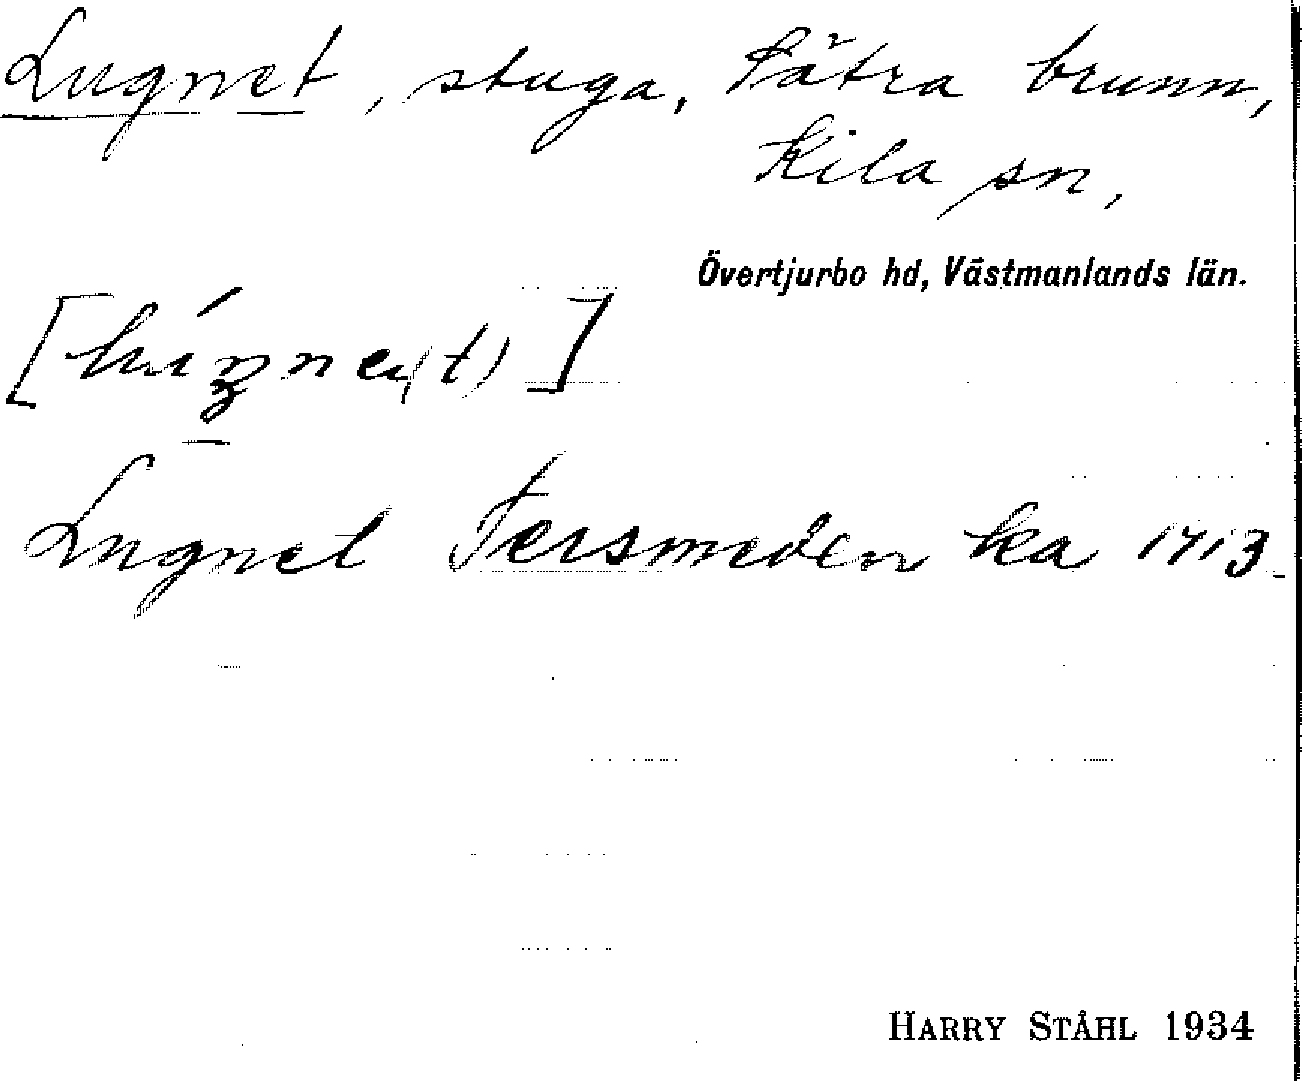 Lugnet, stuga, Sätra brunn,
Kila sn,
Övertjurbo hd, Västmanlands län.
Lugnet Tersmeden ka 1713
HARRY STÅHL 1934